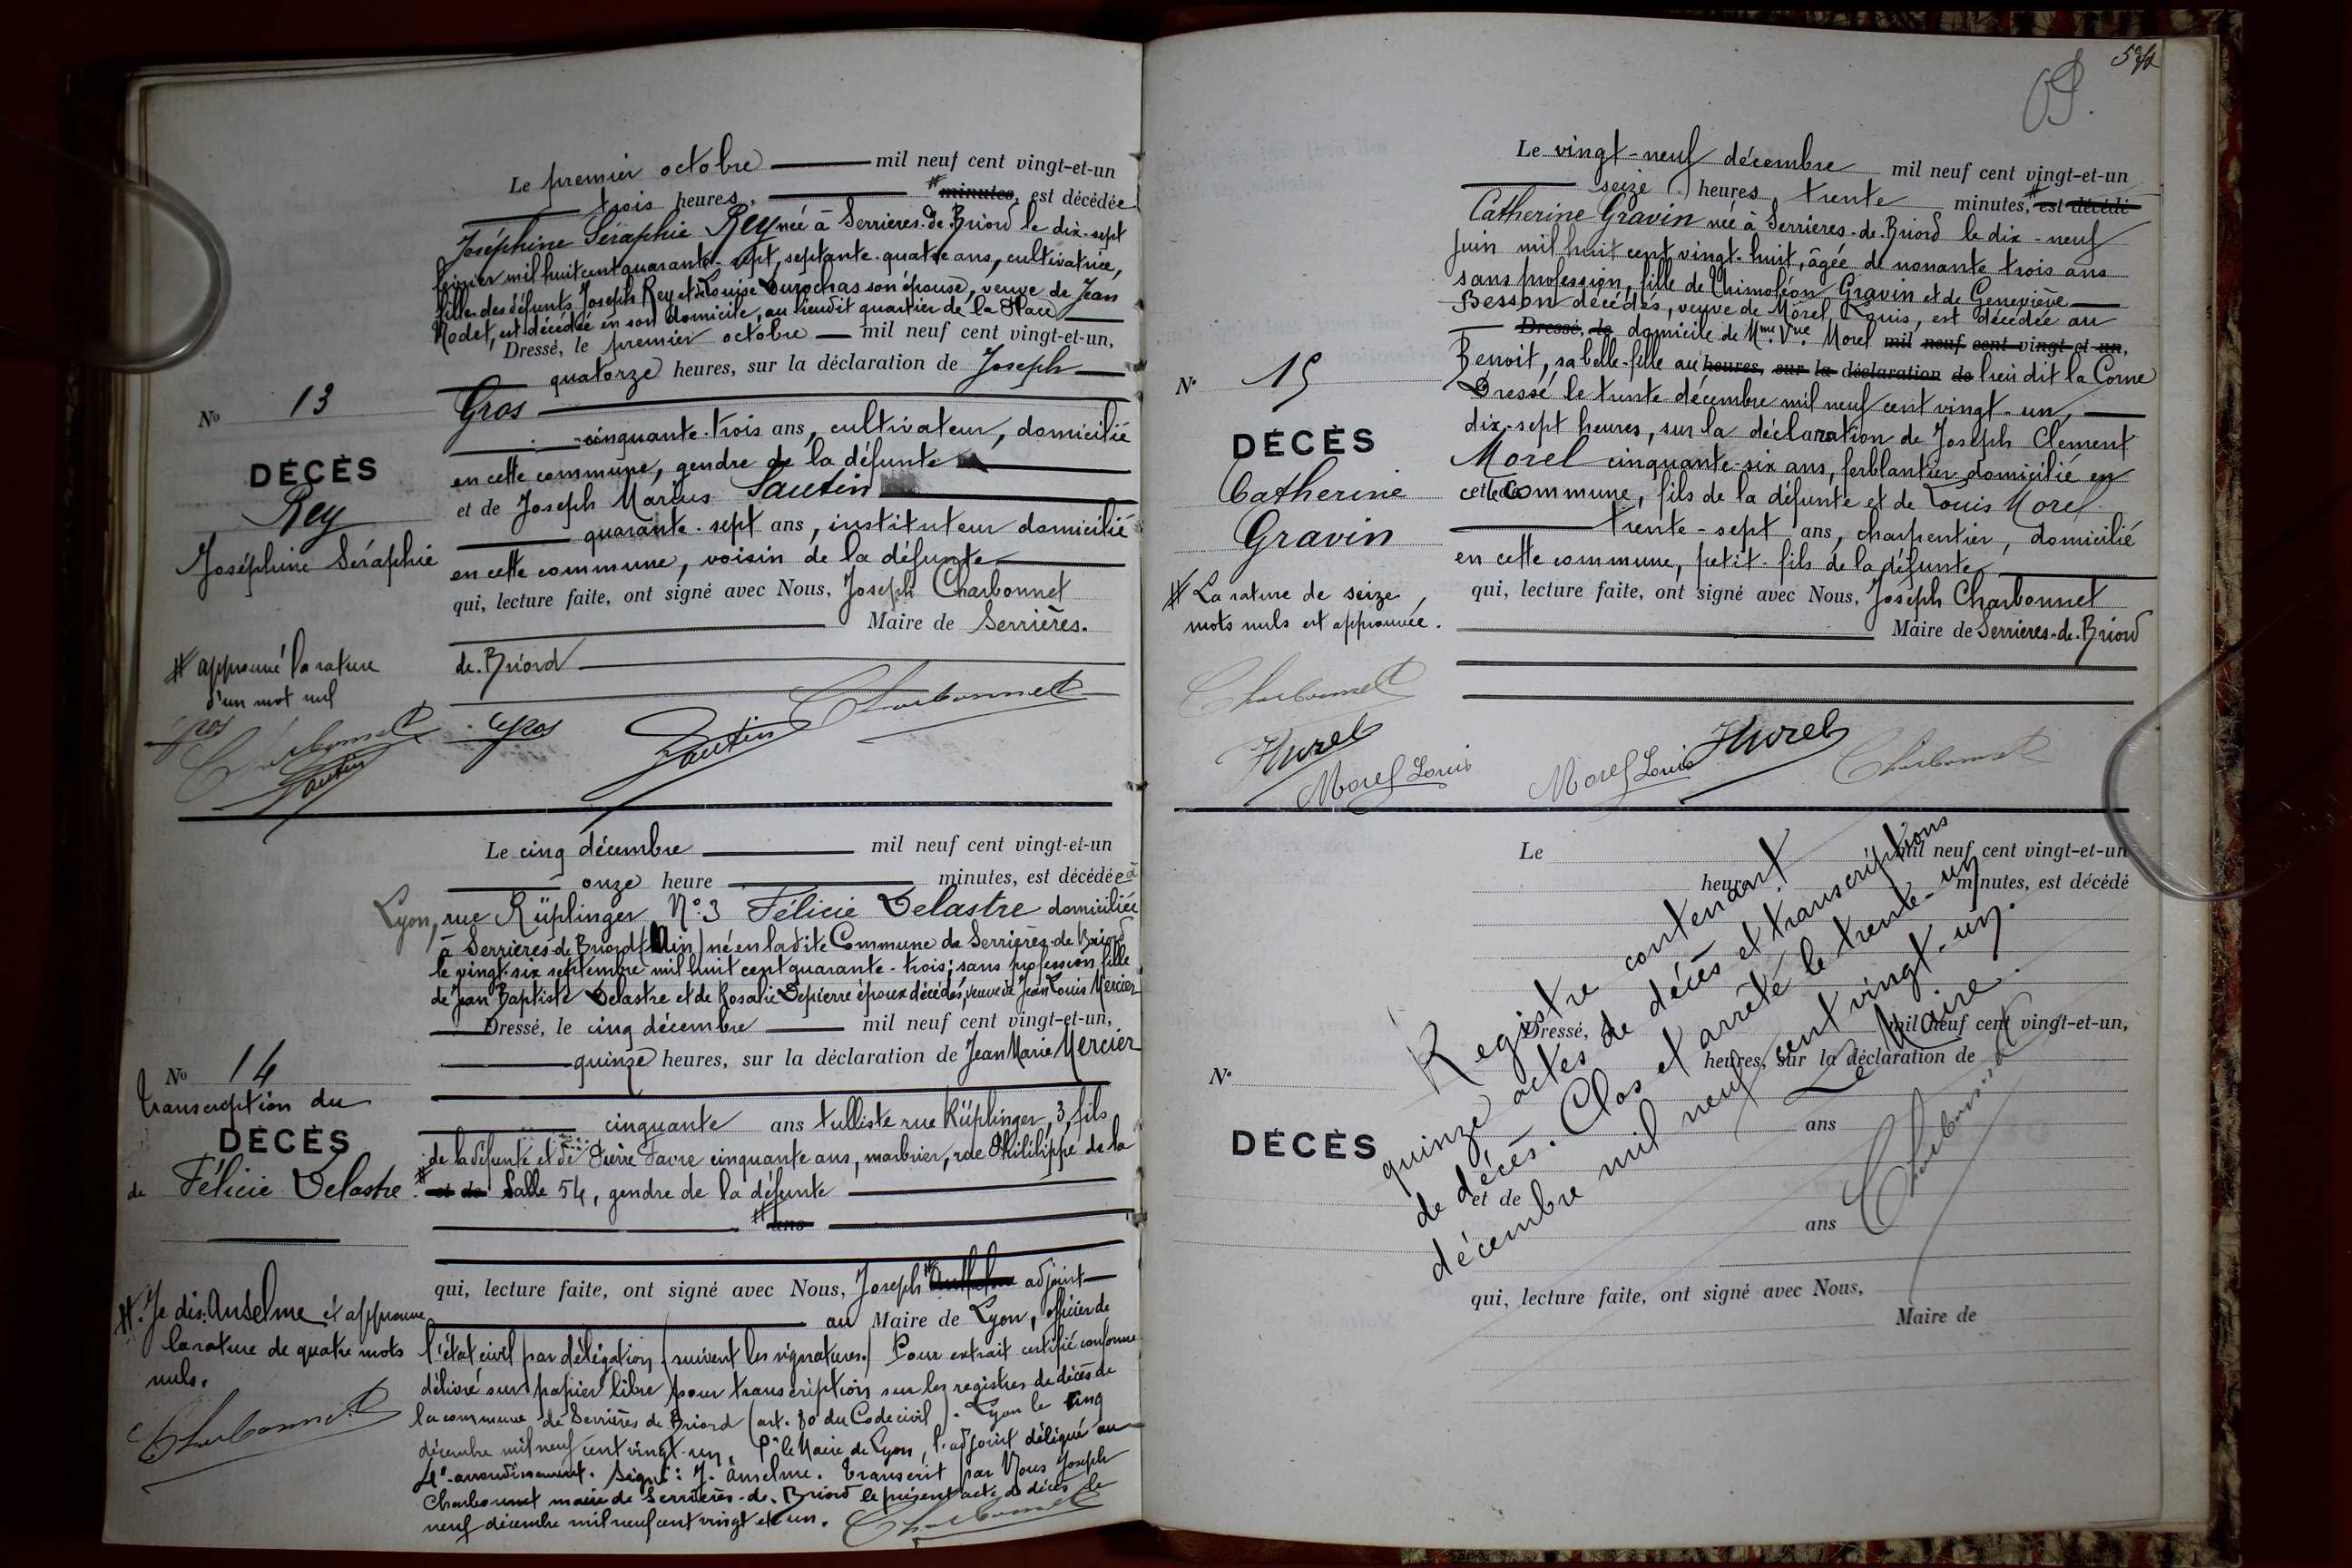 Le premier octobre mil neuf cent vingt-et-un
trois heures, minutes, est décédée
Joséphine Séraphie Rey née à Serrières-de-Briord le dix-sept
février mil huit cent quarante-sept, septante-quatre ans, cultivatrice,
fille des défunts Joseph Rey et de Louise Durochas son épouse, veuve de Jean
Nodet, est décédée en son domicile, au lieudit quartier de la Place
Dressé, le premier octobre mil neuf cent vingt-et-un,
quatorze heures, sur la déclaration de Joseph
Gros
cinquante-trois ans, cultivateur, domicilié
en cette commune, gendre de la défunte
et de Joseph Marius Sautin
quarante-sept ans, instituteur domicilié
en cette commune, voisin de la défunte
qui, lecture faite, ont signé avec Nous, Joseph Charbonnet
Maire de Serrières.
de-Briord
No 13
DÉCÈS
Rey
Joséphine Séraphie
# approuvé la rature
d'un mot nul
Gros
Charbonnet
Sautin
Gros Sautin Charbonnet
Le cinq décembre mil neuf cent vingt-et-un
onze heure minutes, est décédée à
Lyon, rue Rüplinger No 3 Félicie Delastre domiciliée
à Serrières-de-Briord (Ain) né en ladite Commune de Serrières-de-Briord
le vingt-six septembre mil huit cent quarante-trois; sans profession, fille
de Jean Baptiste Delastre et de Rosalie Depierre époux décédés, veuve de Jean Louis Mercier
Dressé, le cinq décembre mil neuf cent vingt-et-un,
quinze heures, sur la déclaration de Jean Marie Mercier
cinquante ans tulliste rue Rüplinger, 3, fils
de la défunte et de Pierre Favre cinquante ans, marbrier, rue Philippe de la
# et de Salle 54, gendre de la défunte
# ans
qui, lecture faite, ont signé avec Nous, Joseph # adjoint
au Maire de Lyon, officier de
l'état civil par délégation (suivent les signatures.) Pour extrait certifié conforme
délivré sur papier libre pour transcription sur les registres de décès de
la commune de Serrières de Briord (art. 80 du Code civil). Lyon le cinq
décembre mil neuf cent vingt-un. Pr le Maire de Lyon, l'adjoint délégué au
4e arrondissement. Signé: J. Anselme. Transcrit par Nous Joseph
Charbonnet maire de Serrières-de-Briord le présent acte de décès le
neuf décembre mil neuf cent vingt et un. Charbonnet
No 14
transcription du
DÉCÈS
de Félicie Delastre.
#. Je dis: Anselme et approuve
la rature de quatre mots
nuls.
Charbonnet
Le vingt-neuf décembre mil neuf cent vingt-et-un
seize heures trente minutes, # est décédé
Catherine Gravin née à Serrières-de-Briord le dix-neuf
juin mil huit cent vingt-huit, âgée de nonante trois ans
sans profession, fille de Thimoléon Gravin et de Geneviève
Besson décédés, veuve de Morel Louis, est décédée au
Dressé, le domicile de Mme Vve Morel mil neuf cent vingt-et-un,
Benoit, sa belle-fille au heures, sur la déclaration de lieu dit la Corne
Dressé le trente décembre mil neuf cent vingt-un,
dix-sept heures, sur la déclaration de Joseph Clement
Morel cinquante-six ans, ferblantier domicilié en
cette commune, fils de la défunte et de Louis Morel
trente-sept ans, charpentier, domicilié
en cette commune, petit-fils de la défunte
qui, lecture faite, ont signé avec Nous, Joseph Charbonnet
Maire de Serrières-de-Briord
No 15
DÉCÈS
Catherine
Gravin
# La rature de seize
mots nuls est approuvée.
Charbonnet
Morel
Morel Louis
Morel Louis Morel Charbonnet
Le mil neuf cent vingt-et-un
heures minutes, est décédé
Dressé, mil neuf cent vingt-et-un,
heures, sur la déclaration de
ans
et de
ans
qui, lecture faite, ont signé avec Nous,
Maire de
No
DÉCÈS
Registre contenant
quinze actes de décès et transcriptions
de décès. Clos et arrêté le trente-un
décembre mil neuf cent vingt-un.
Le Maire.
Charbonnet